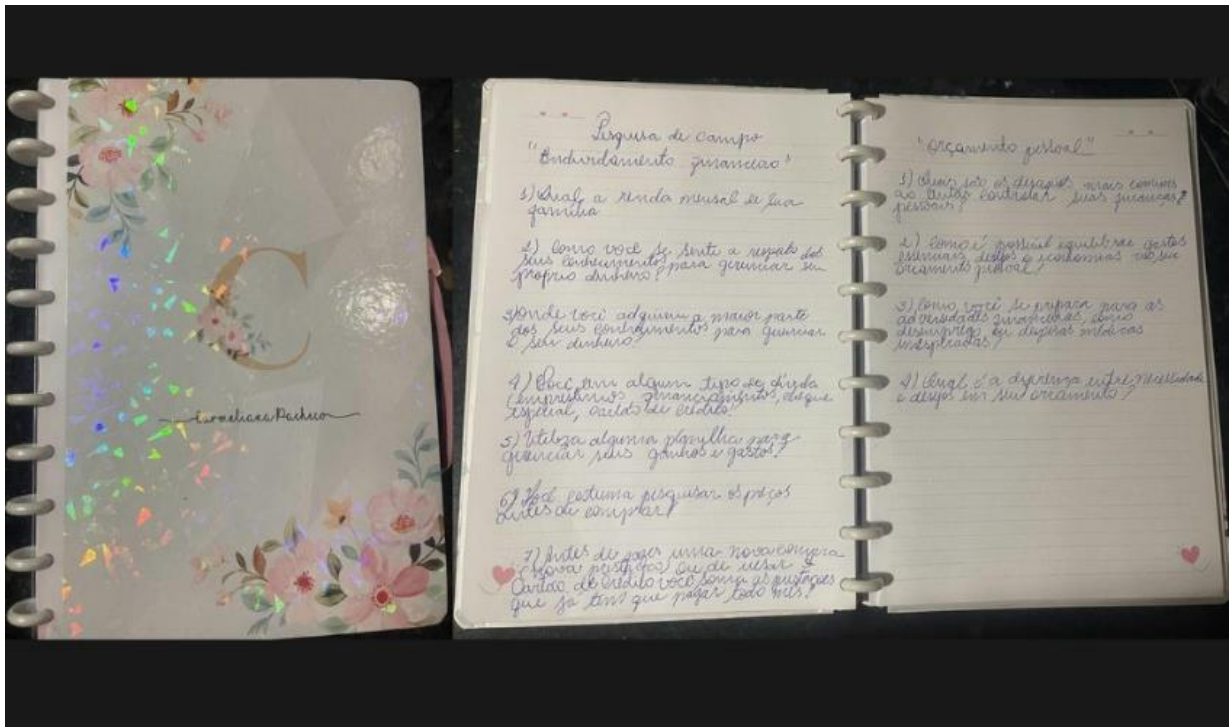 C
Carmeliana Pacheco
Pesquisa de campo
"Endividamento financeiro"
1) Qual a renda mensal de sua
família
2) Como você se sente a respeito dos
seus conhecimentos para gerenciar seu
próprio dinheiro?
3) Onde você adquiriu a maior parte
dos seus conhecimentos para gerenciar
o seu dinheiro?
4) Você tem algum tipo de dívida
(empréstimos, financiamentos, cheque
especial, cartão de crédito)?
5) Utiliza alguma planilha para
gerenciar seus ganhos e gastos?
6) Você costuma pesquisar os preços
antes de comprar?
7) Antes de fazer uma nova compra
(nova prestação) ou de usar o
Cartão de crédito você soma as prestações
que já tem que pagar todo mês?
"Orçamento pessoal"
1) Quais são os desafios mais comuns
ao tentar controlar suas finanças
pessoais?
2) Como é possível equilibrar gastos
essenciais, desejos e economias no seu
orçamento pessoal?
3) Como você se prepara para as
adversidades financeiras, como
desemprego ou despesas médicas
inesperadas?
4) Qual é a diferença entre necessidade
e desejo em seu orçamento?